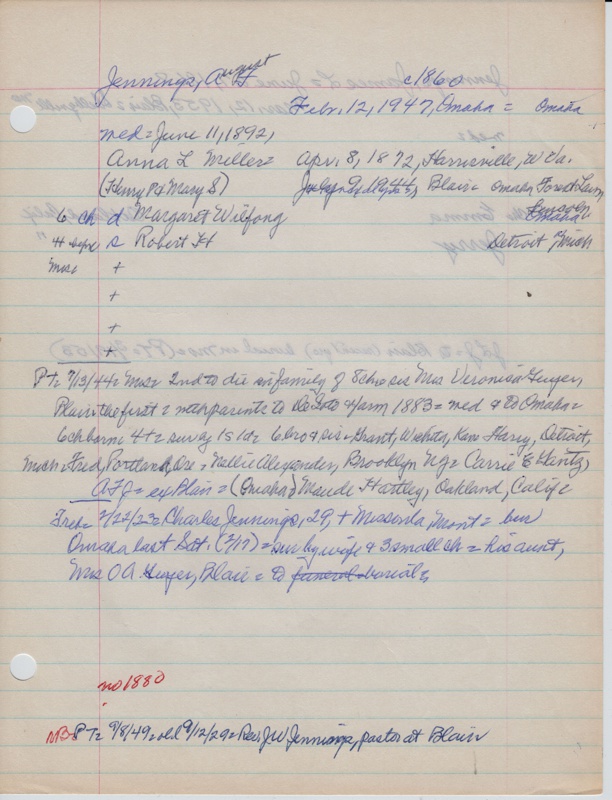 Jennings, August F c1860
Febr, 12, 1947, Omaha = Omaha
med = June 11, 1892,
Anna L Miller = Apr. 8, 1872, Harrisville, W Va.
(Henry P & Mary S) Blair = Omaha, Forest Lawn,
Lincoln
6 ch d Margaret Wilfong Omaha
4 s Robert H Detroit Mich
+
+
+
+
PT = 7/13/44 = Mrs = 2nd to die in family of 5 Mrs Veronica Guyer,
Blair the first = parents to farm 1883 = med & to Omaha =
6 ch born 4 + = surv 1s 1d = 6 bro & sis = Grant, Wichita, Kan = Harry, Detroit,
Mich = Fred, Portland, Ore = Nellie Alexander, Brooklyn NY = Carrie Hentz,
AFJ = ex Blair = (Omaha) Maude Hartley, Oakland, Calif =
Trib = 2/22/23 = Charles Jennings, 29, + Missoula, Mont = bur
Omaha last Sat. (2/17) = sur by wife & 3 small ch = his aunt,
Mrs O A Guyer, Blair = to funeral burial,
no 1880
NB = PT = 9/8/49 = old 9/12/29 = Rev. J W Jennings, pastor at Blair